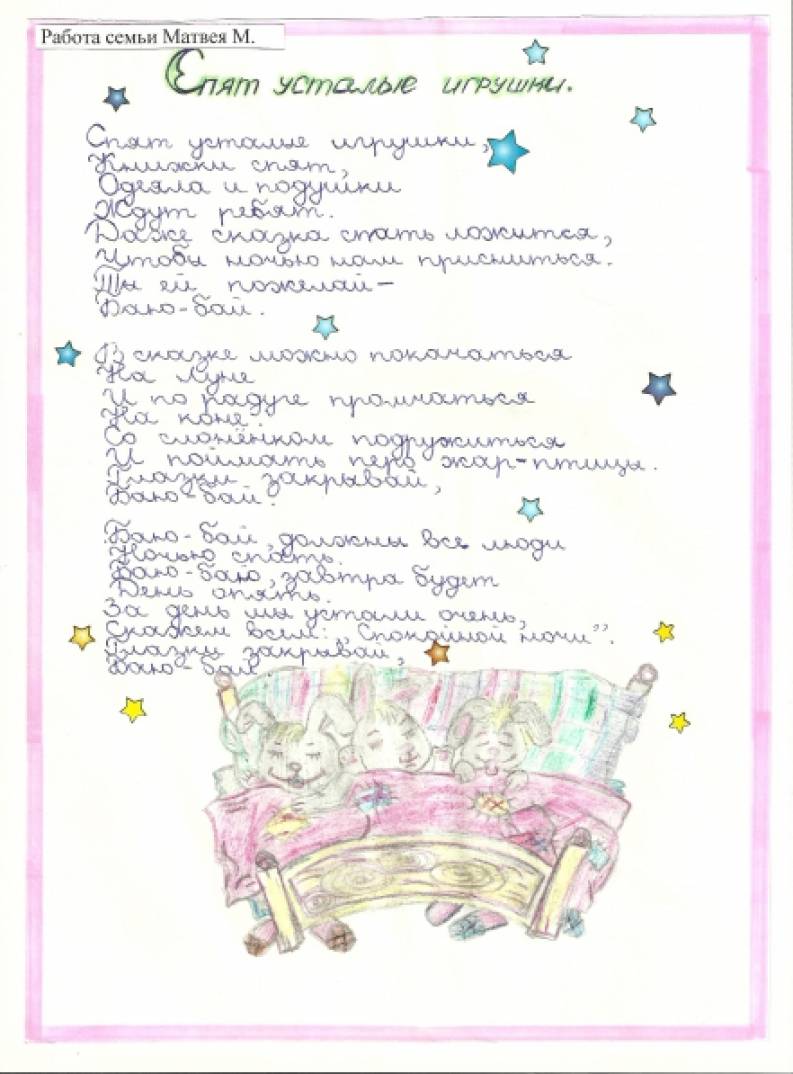 Работа семьи Матвея М.
Спят усталые игрушки.
Спят усталые игрушки,
Книжки спят,
Одеяла и подушки
Ждут ребят.
Даже сказка спать ложится,
Чтобы ночью нам присниться.
Ты ей пожелай –
Баю-бай.
В сказке можно покачаться
На Луне
И по радуге промчаться
На коне.
Со слонёнком подружиться
И поймать перо жар-птицы.
Глазки закрывай,
Баю-бай.
Баю-бай, должны все люди
Ночью спать.
Баю-баю, завтра будет
День опять.
За день мы устали очень,
Скажем всем: „Спокойной ночи”.
Глазки закрывай,
Баю-бай